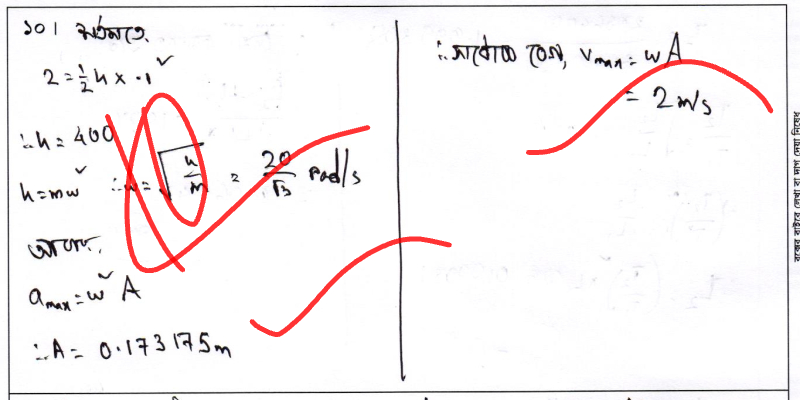 ১০। শর্তমতে,
2 = ½ k × ·1²
∴ k = 400
k = mω² ∴ ω = √(k/m) = 20/√3 rad/s
আবার,
a_max = ω² A
∴ A = 0.173175 m
∴ সর্বোচ্চ বেগ, v_max = ωA
= 2 m/s
বক্সের বাইরে লেখা বা দাগ দেয়া নিষেধ